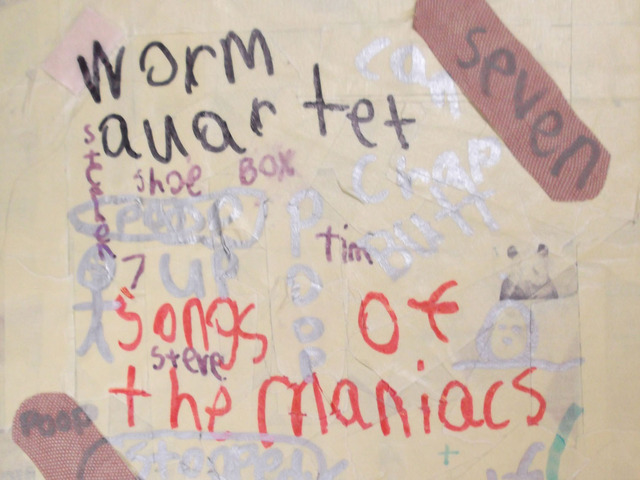 worm
quartet
seven
can
shoe BOX
chap
Butt
poop
poop
Tim
7 up
songs of
steve
the maniacs
poop